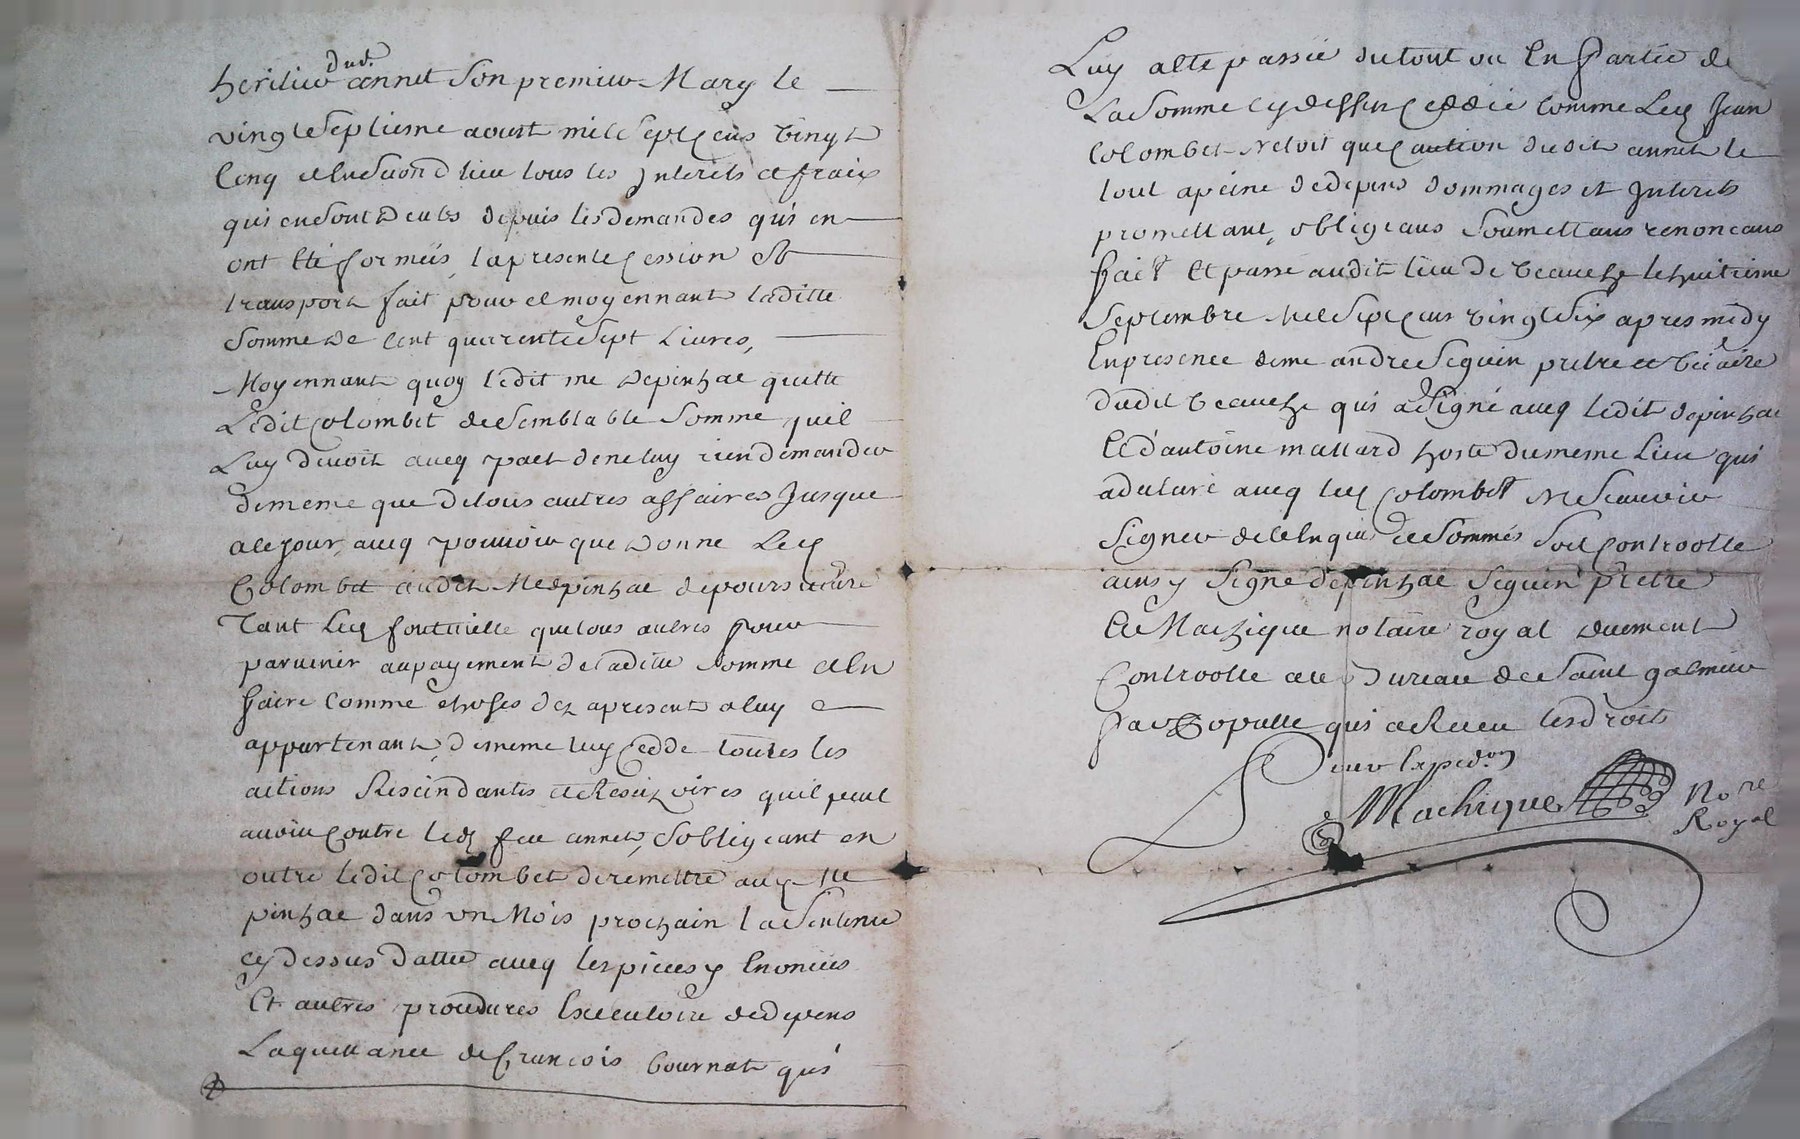 dud.
heritier annet son premier Mary le
vingt septiesme aoust mil sept cens vingt
cinq et en second lieu tous les jnterets et fraix
qui en sont deubs depuis les demandes qui en
ont été formeés, la presente cession et
transport fait pour et moyennant laditte
somme de cent quarente sept Livres,
Moyennant quoy ledit me depinhac quitte
Ledit Colombet de semblable somme quil
Luy devoit avecq pact de ne luy rien demander
de meme que de tous autres affaires jusque
a ce jour, avecq pouvoir que donne Led
Colombet audit Me depinhac de poursuivre
Tant Led fontvielle que tous autres pour
parvenir au payement de laditte somme et en
faire comme choses dez apresent a luy
appartenant, de meme luy cedde toutes les
actions Rescindantes et Rescizoires quil peut
avoir contre led feu annet, sobligeant en
outre ledit Colombet de remettre aud Me
pinhac dans un Mois prochain la sentence
cy dessus dattée avecq les pieces y Enoncées
Et autres procedures Executoire de depens
La quittance de françois Cournat qui
Luy a eté passée du tout ou En Partie de
La somme cy dessus ceddée comme Led Jean
Colombet Netoit que caution dudit annet le
tout a peine de depens dommages et jnterets
promettant, obligeans soumettans renonceans
fait Et passé audit lieu de Veauche le huitieme
septembre Mil sept cens vingt six apres midy
En presence de me andre seguin pretre et vicaire
dudit Veauche qui a signé avecq ledit depinhac
Et d'antoine mallard hoste du meme Lieu qui
a declaré avecq led Colombet Ne scavoir
signer de ce Enquis et sommés soit Controolle
ainsy signé depinhac seguin prêtre
Et Machique notaire royal duement
Controolle au Bureau de saint galmier
Par Dopalle qui a Receu les droits
pour Expedon
Machique Nore
Royal